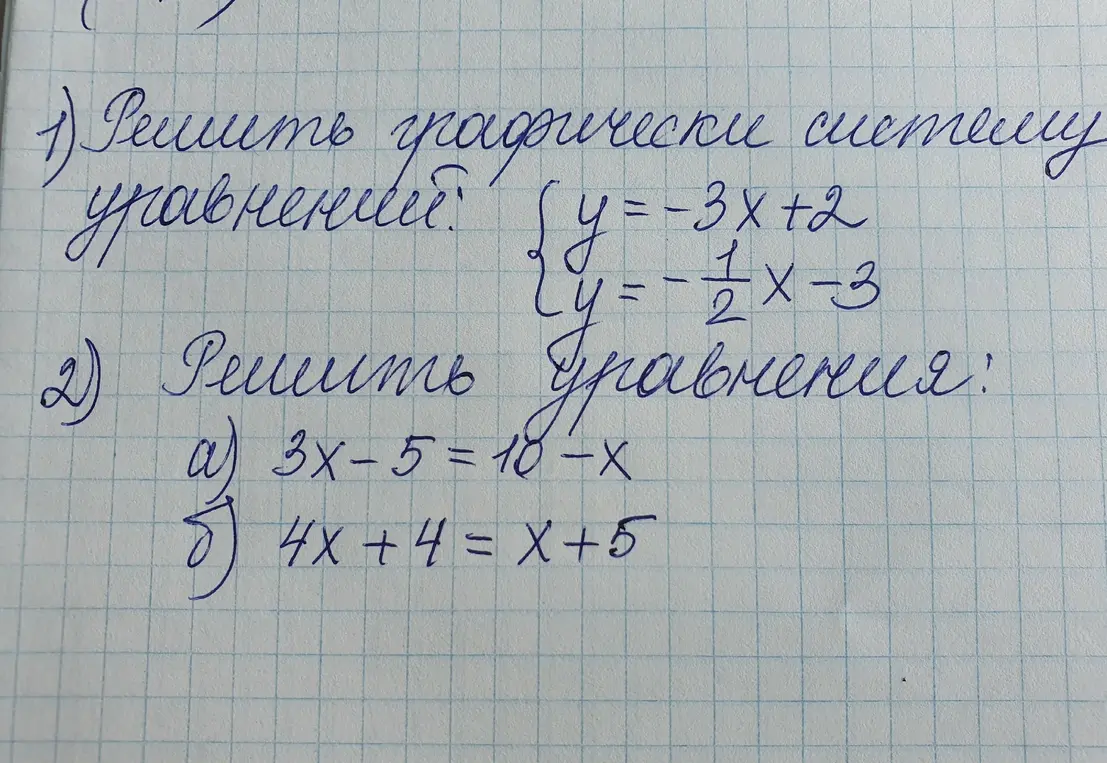 1) Решить графически систему
уравнений: { y = -3x + 2
y = - 1/2 x - 3
2) Решить уравнения:
а) 3x - 5 = 10 - x
б) 4x + 4 = x + 5